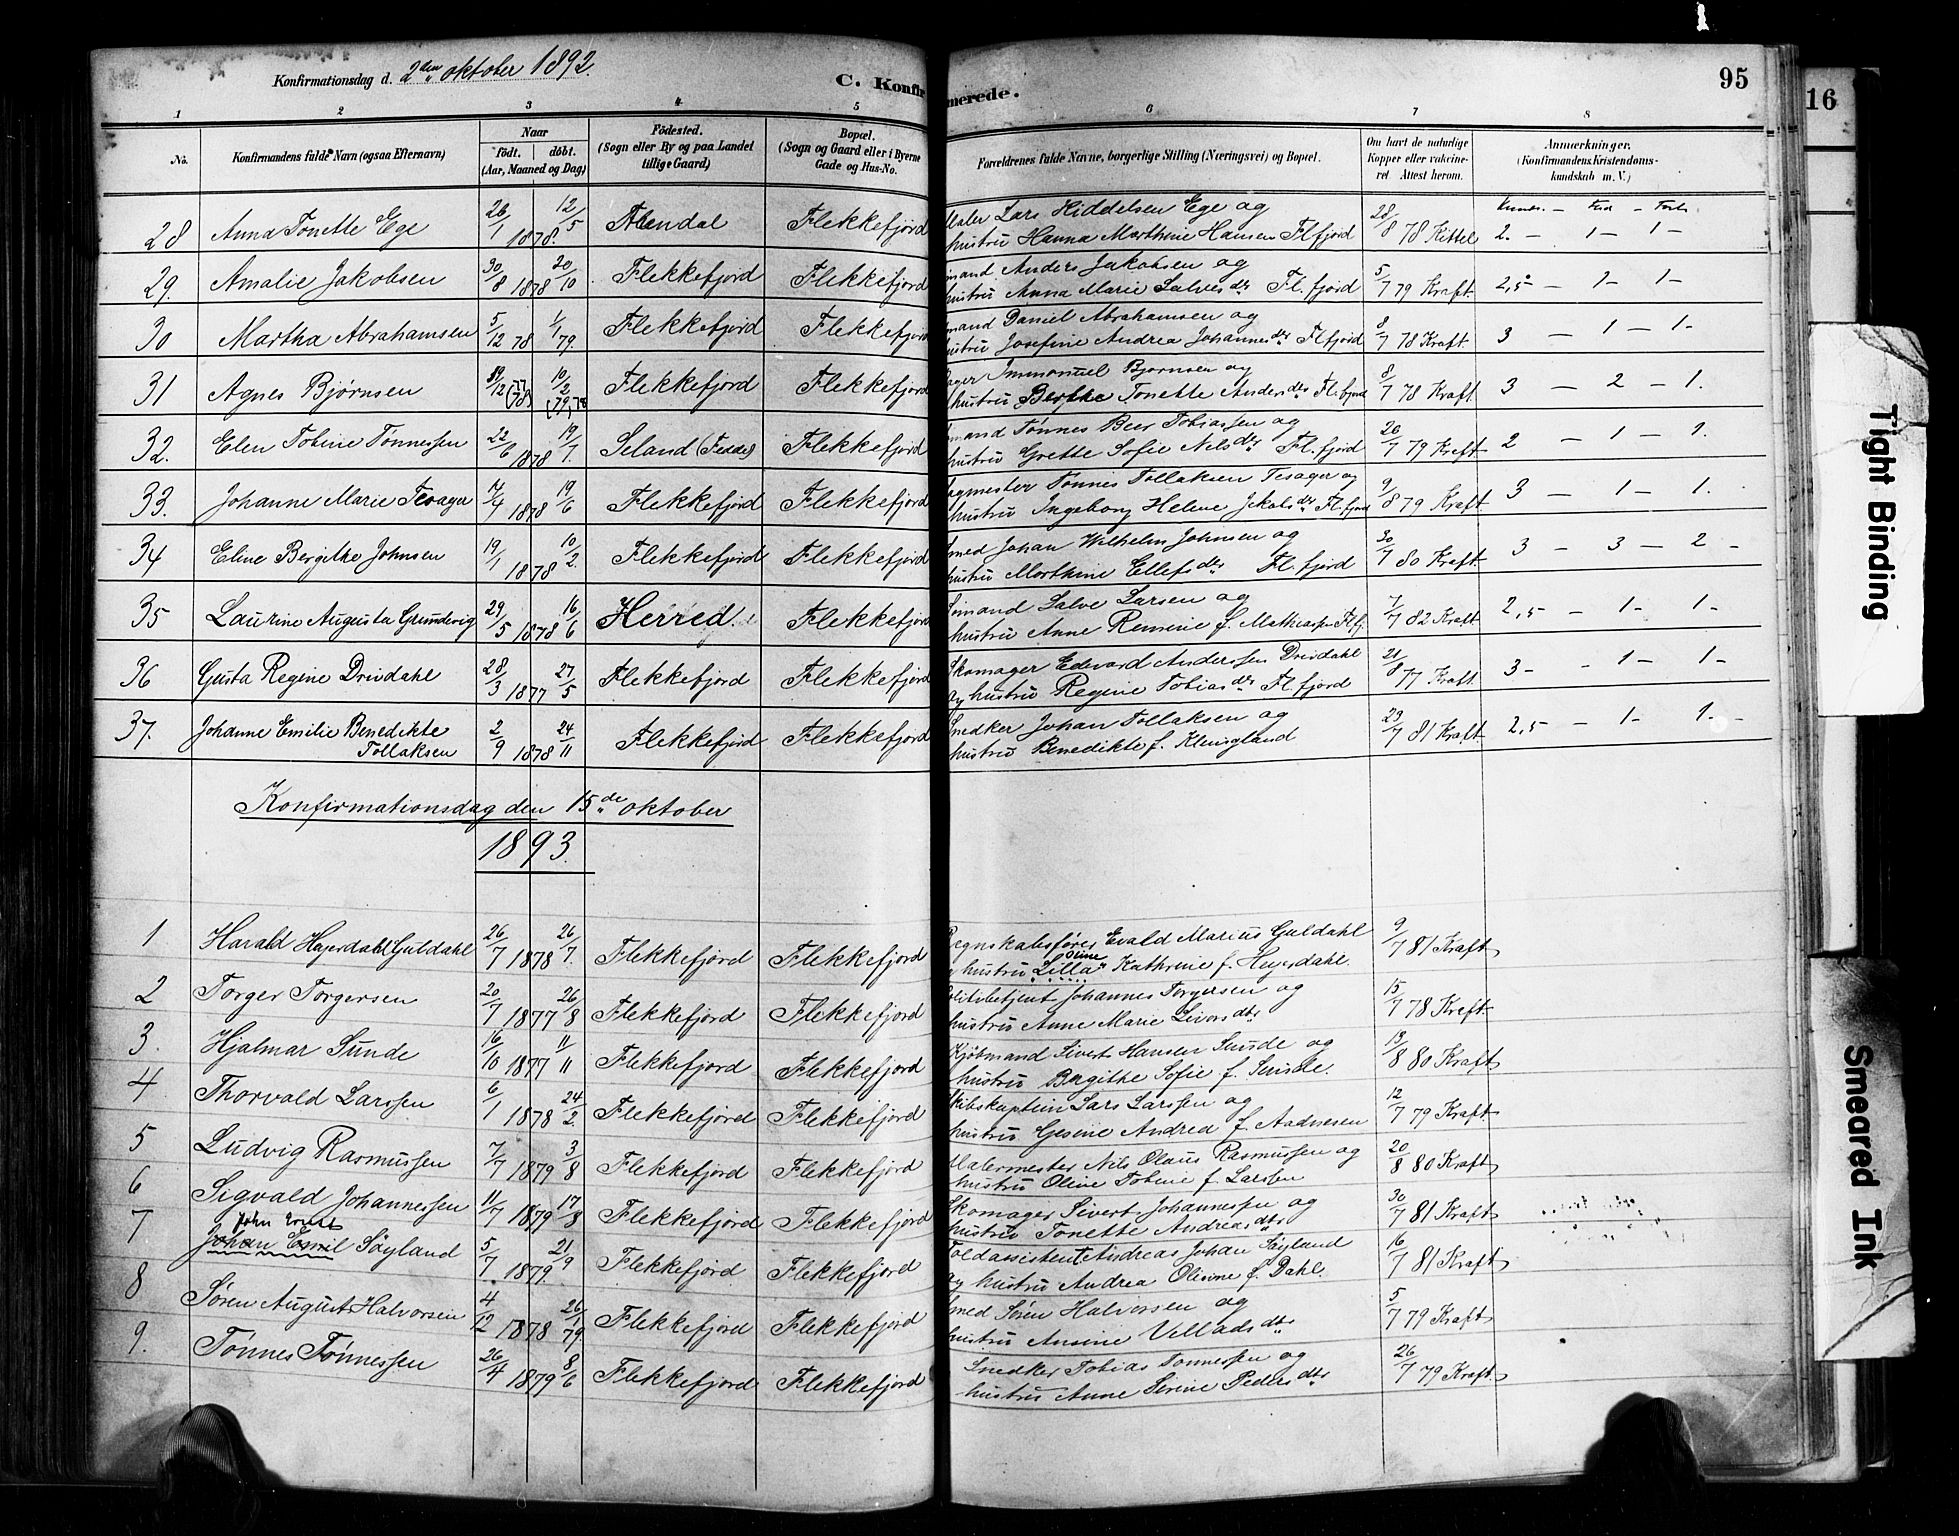 Konfirmationsdag d. 2den oktober 1892.
C. Konfir
merede.
95
16
1 2 3 4 5 6 7 8
No.
Konfirmandens fulde Navn (ogsaa Efternavn)
Naar
født. døbt.
(Aar, Maaned og Dag)
Fødested.
(Sogn eller By og paa Landet
tillige Gaard)
Bopæl.
(Sogn og Gaard eller i Byerne
Gade og Hus-No.
Forældrenes fulde Navne, borgerlige Stilling (Næringsvei) og Bopæl.
Om havt de naturlige
Kopper eller vakcine-
ret Attest herom.
Anmærkninger.
(Konfirmandens Kristendoms-
kundskab m. V.)
28 Anna Tonette Ege 26/1 1878. 12/5 Flekkefjord Lars Hiddelsen Ege og
hustru Hanna Marthine Hansen Fl.fjord 28/8 78 Kittel 2. — 1 — 1 —
29. Amalie Jakobsen 30/8 1878 20/10 Flekkefjord Flekkefjord Anders Jakobsen og
hustru Anna Marie Salvesdtr Fl. fjord 5/7 79 Kraft. 2,5 — 1 — 1 —
30 Martha Abrahamsen 5/12 78 1/1 79. Flekkefjord Flekkefjord mand Daniel Abrahamsen og
hustru Josefine Andrea Johannesdtr Fl fjord 8/7 78 Kraft. 3 — 1 — 1 —
31 Agnes Bjørnsen Flekkefjord Flekkefjord Immanuel Bjørnsen og
hustru Berthe Tonette Andersdtr Fl. fjord 8/7 78 Kraft. 3 — 2 — 1.
32. Elen Tobine Tønnessen 22/6 1878 19/7. Seland (Fedde) Flekkefjord mand Tønnes Beer Tobiassen og
hustru Grette Sofie Nelsdtr Fl. fjord 26/7 79 Kraft 2 — 1 — 1.
33. Johanne Marie Tesager 7/4 1878 19/6 Flekkefjord Flekkefjord Tønnes Tollaksen Tesager og
hustru Ingeborg Helene Jakobsdtr Fl. fjord 9/8 79 Kraft 3 — 1 — 1.
34 Eline Bergithe Johnsen 19/1 1878 10/2. Flekkefjord Flekkefjord Smed Johan Wilhelm Johnsen og
hustru Marthine Ellefsdtr Fl. fjord 30/7 80 Kraft 3 — 3 — 2 —
35 Laurine Augusta Grundevig 29/5 1878 16/6 Herred Flekkefjord Sømand Salve Larsen og
hustru Anne f. Fl.fj. 7/7 82 Kraft 2,5 — 1 — 1 —
36 Gusta Regine Drivdahl 28/3 1877 27/5 Flekkefjord Flekkefjord Skomager Edvard Anderssen Drivdahl
og hustru Regine Tobiasdtr Fl. fjord 21/8 77 Kraft. 3 — 1 — 1 —
37. Johanne Emilie Benedikte
Tollaksen 2/9 1878 24/11 Flekkefjord Flekkefjord Snedker Johan Tollaksen og
hustru Benedikte f. 23/7 81 Kraft. 2,5 — 1 — 1 —
Konfirmationsdag den 15de oktober
1893.
1 Harald Heyerdahl Guldahl 26/7 1878 26/7. Flekkefjord Flekkefjord Regnskabsfører Evald Marius Guldahl
og hustru Lilla Kathrine f. Heyerdahl. 9/7 81 Kraft
2 Torger Torgersen 20/7 1877 26/8 Flekkefjord Flekkefjord Politibetjent Johannes Torgersen og
hustru Anne Marie Sivorsdtr 15/7 78 Kraft
3. Hjalmar Sunde 16/10 1877 11/11 Flekkefjord Flekkefjord Kjøbmand Sivert Hansen Sunde og
hustru Bergithe Sofie f. Sunde. 13/8 80 Kraft
4 Thorvald Larssen 6/1 1878 24/2. Flekkefjord Flekkefjord Skibskaptein Lars Larssen og
hustru Gesine Andrea f. Aadnesen 12/7 79 Kraft
5 Ludvig Rasmussen 7/7 1879 3/8 Flekkefjord Flekkefjord Malermester Nils Olaus Rasmussen og
hustru Oline Tobine f. Larsen 20/8 80 Kraft
6 Sigvald Johannessen 11/7 1879 17/8 Flekkefjord Flekkefjord Skomager Sivert Johannessen og
hustru Tonette Andreasdtr 30/7 81 Kraft
7 John Ernst
Johan Emil Søyland 5/7 1879. 21/9 Flekkefjord Flekkefjord Toldassistent Andreas Johan Søyland
og hustru Andrea Olisine f. Dahl. 16/7 81 Kraft
8 Søren August Halvorsen 4/12 1878 26/1 79 Flekkefjord Flekkefjord Smed Søren Halvorssen og
hustru Ansine Velladsdtr 5/7 79 Kraft
9. Tønnes Tønnessen 26/4 1879 8/6 Flekkefjord Flekkefjord Snedker Tobias Tønnessen og
hustru Anne Serine Pedersdtr 26/7 79 Kraft.
Tight Binding
Smeared Ink